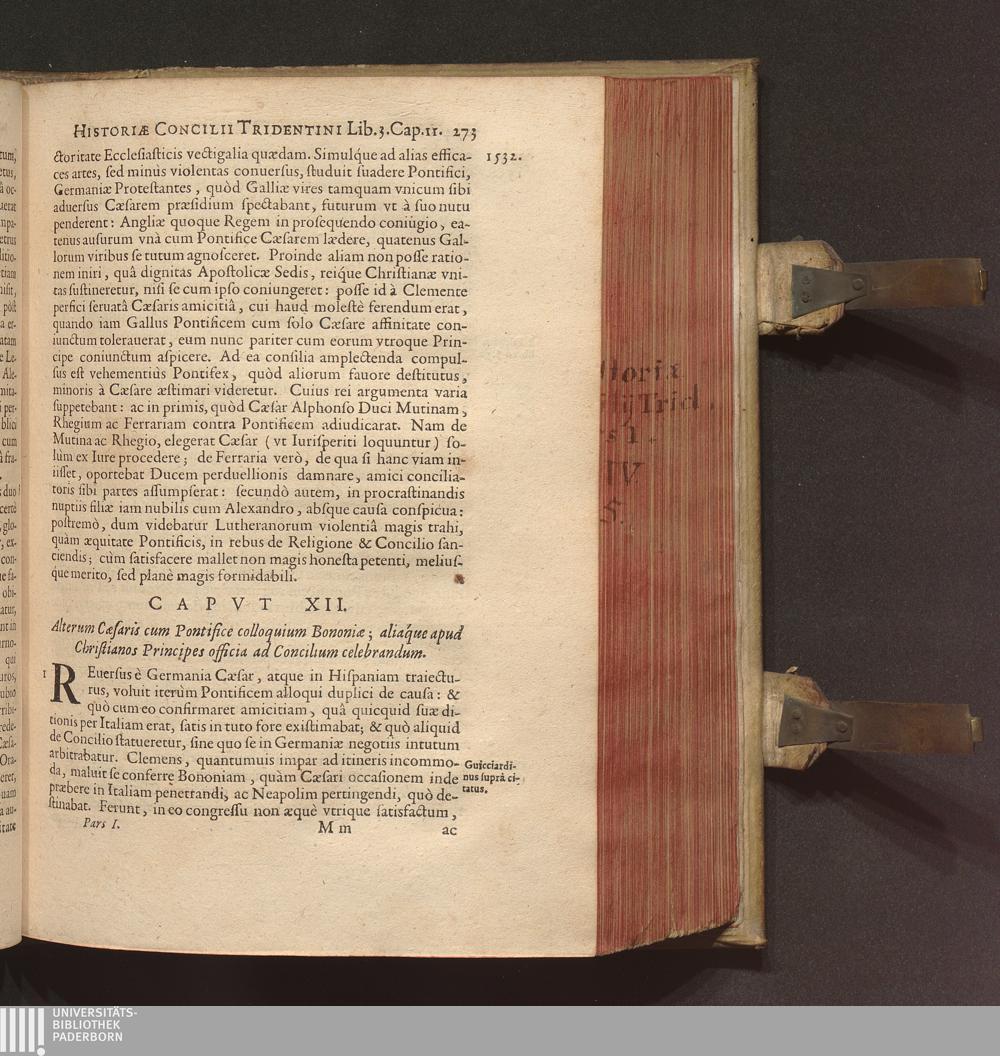 HISTORIÆ CONCILII TRIDENTINI Lib.3.Cap.11. 273
ctoritate Ecclesiasticis vectigalia quædam. Simulq́ue ad alias effica-
1532.
ces artes, sed minùs violentas conuersus, studuit suadere Pontifici,
Germaniæ Protestantes, quòd Galliæ vires tamquam vnicum sibi
aduersus Cæsarem præsidium spectabant, futurum vt à suo nutu
penderent: Angliæ quoque Regem in prosequendo coniugio, ea-
tenus ausurum vnà cum Pontifice Cæsarem lædere, quatenus Gal-
lorum viribus se tutum agnosceret. Proinde aliam non posse ratio-
nem iniri, quâ dignitas Apostolicæ Sedis, reiq́ue Christianæ vni-
tas sustineretur, nisi se cum ipso coniungeret: posse id à Clemente
perfici seruatâ Cæsaris amicitiâ, cui haud molestè ferendum erat,
quando iam Gallus Pontificem cum solo Cæsare affinitate con-
iunctum tolerauerat, eum nunc pariter cum eorum vtroque Prin-
cipe coniunctum aspicere. Ad ea consilia amplectenda compul-
sus est vehementiùs Pontifex, quòd aliorum fauore destitutus,
minoris à Cæsare æstimari videretur. Cuius rei argumenta varia
suppetebant: ac in primis, quòd Cæsar Alphonso Duci Mutinam,
Rhegium ac Ferrariam contra Pontificem adiudicarat. Nam de
Mutina ac Rhegio, elegerat Cæsar (vt Iurisperiti loquuntur) so-
lùm ex Iure procedere; de Ferraria verò, de qua si hanc viam in-
iisset, oportebat Ducem perduellionis damnare, amici concilia-
toris sibi partes assumpserat: secundò autem, in procrastinandis
nuptiis filiæ iam nubilis cum Alexandro, absque causa conspicua:
postremò, dum videbatur Lutheranorum violentiâ magis trahi,
quàm æquitate Pontificis, in rebus de Religione & Concilio san-
ciendis; cùm satisfacere mallet non magis honesta petenti, melius-
que merito, sed planè magis formidabili.
CAPVT XII.
Alterum Cæsaris cum Pontifice colloquium Bononiæ; aliaq́ue apud
Christianos Principes officia ad Concilium celebrandum.
1 REuersus è Germania Cæsar, atque in Hispaniam traiectu-
rus, voluit iterùm Pontificem alloqui duplici de causa: &
quò cum eo confirmaret amicitiam, quâ quicquid suæ di-
tionis per Italiam erat, satis in tuto fore existimabat; & quò aliquid
de Concilio statueretur, sine quo se in Germaniæ negotiis intutum
arbitrabatur. Clemens, quantumuis impar ad itineris incommo-
da, maluit se conferre Bononiam, quàm Cæsari occasionem inde
præbere in Italiam penetrandi, ac Neapolim pertingendi, quò de-
stinabat. Ferunt, in eo congressu non æquè vtrique satisfactum,
Guicciardi-
nus suprà ci-
tatus.
Pars I. M m ac
UNIVERSITÄTS-
BIBLIOTHEK
PADERBORN